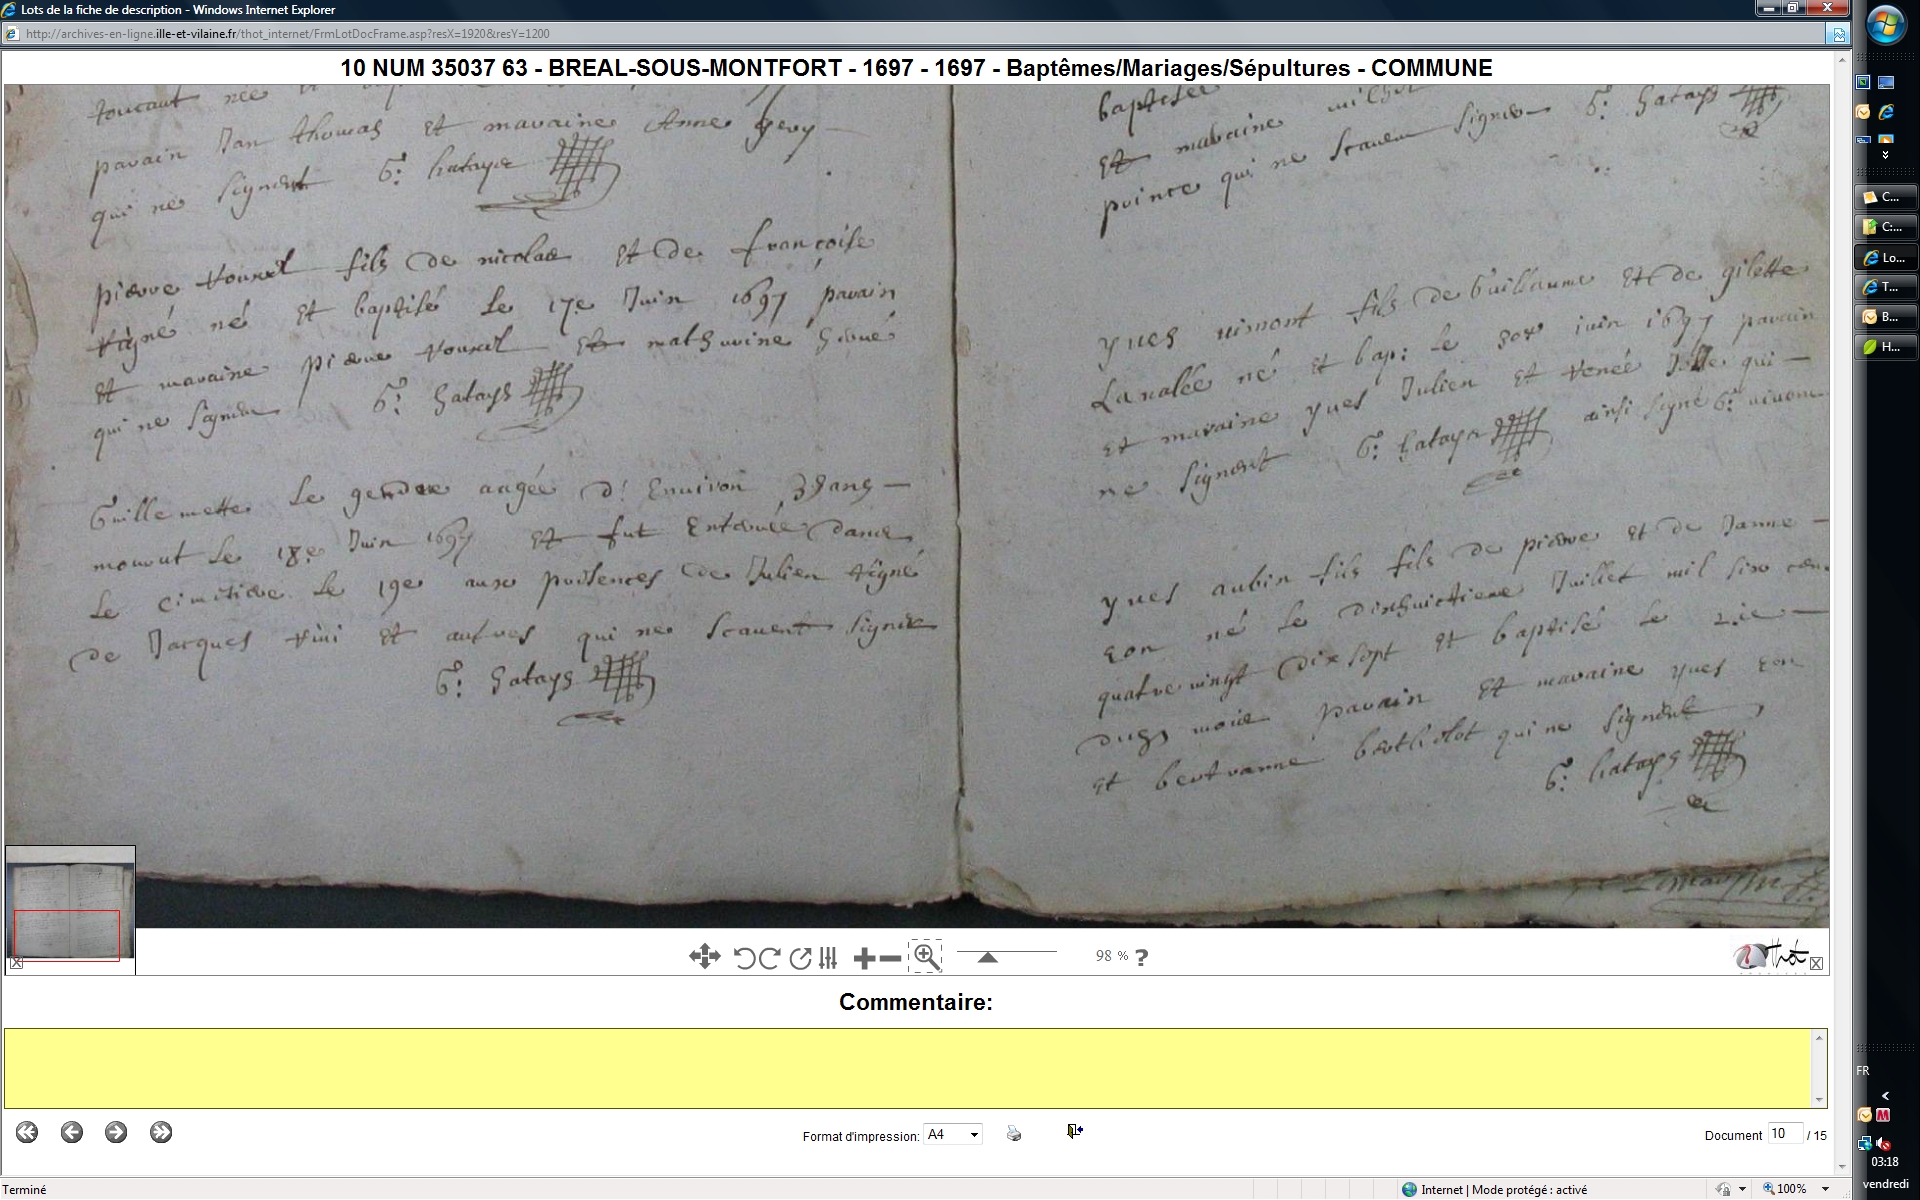 Lots de la fiche de description - Windows Internet Explorer
http://archives-en-ligne.ille-et-vilaine.fr/thot_internet/FrmLotDocFrame.asp?resX=1920&resY=1200
10 NUM 35037 63 - BREAL-SOUS-MONTFORT - 1697 - 1697 - Baptêmes/Mariages/Sépultures - COMMUNE
toucant née
parain Jan thomas et maraine Anne
qui ne signent G: hatays
pierre fils de nicolas et de françoise
né et baptisé le 17e Juin 1697 parain
et maraine pierre et mathurine hervé
qui ne signent G: hatays
Guillemette le gendre aagée d'environ ans
mourut le 18e Juin 1697 et fut enterrée dans
le cimitiere le 19e aux de Julien
de Jacques et autres qui ne scavent signer
G: hatays
baptisée
et maraine
pointe qui ne scavent signer G: hatays
yves fils de Guillaume et de gilette
Lavalée né et bap: le 30e juin 1697 parain
et maraine yves Julien et renée qui
ne signent G: hatays ainsi signé G:
yves aubin fils fils de pierre et de Janne
eon né le dixhuictieme Juillet mil six cen
quatre vingt dix sept et baptisé le
dugs mois parain et maraine yves eon
et bertranne berthelot qui ne signent
G: hatays
98 % ?
Thot
Commentaire:
Format d'impression: A4
Document 10 / 15
Terminé
Internet | Mode protégé : activé
100%
C...
C:...
Lo...
T...
B...
H...
FR
03:18
vendredi